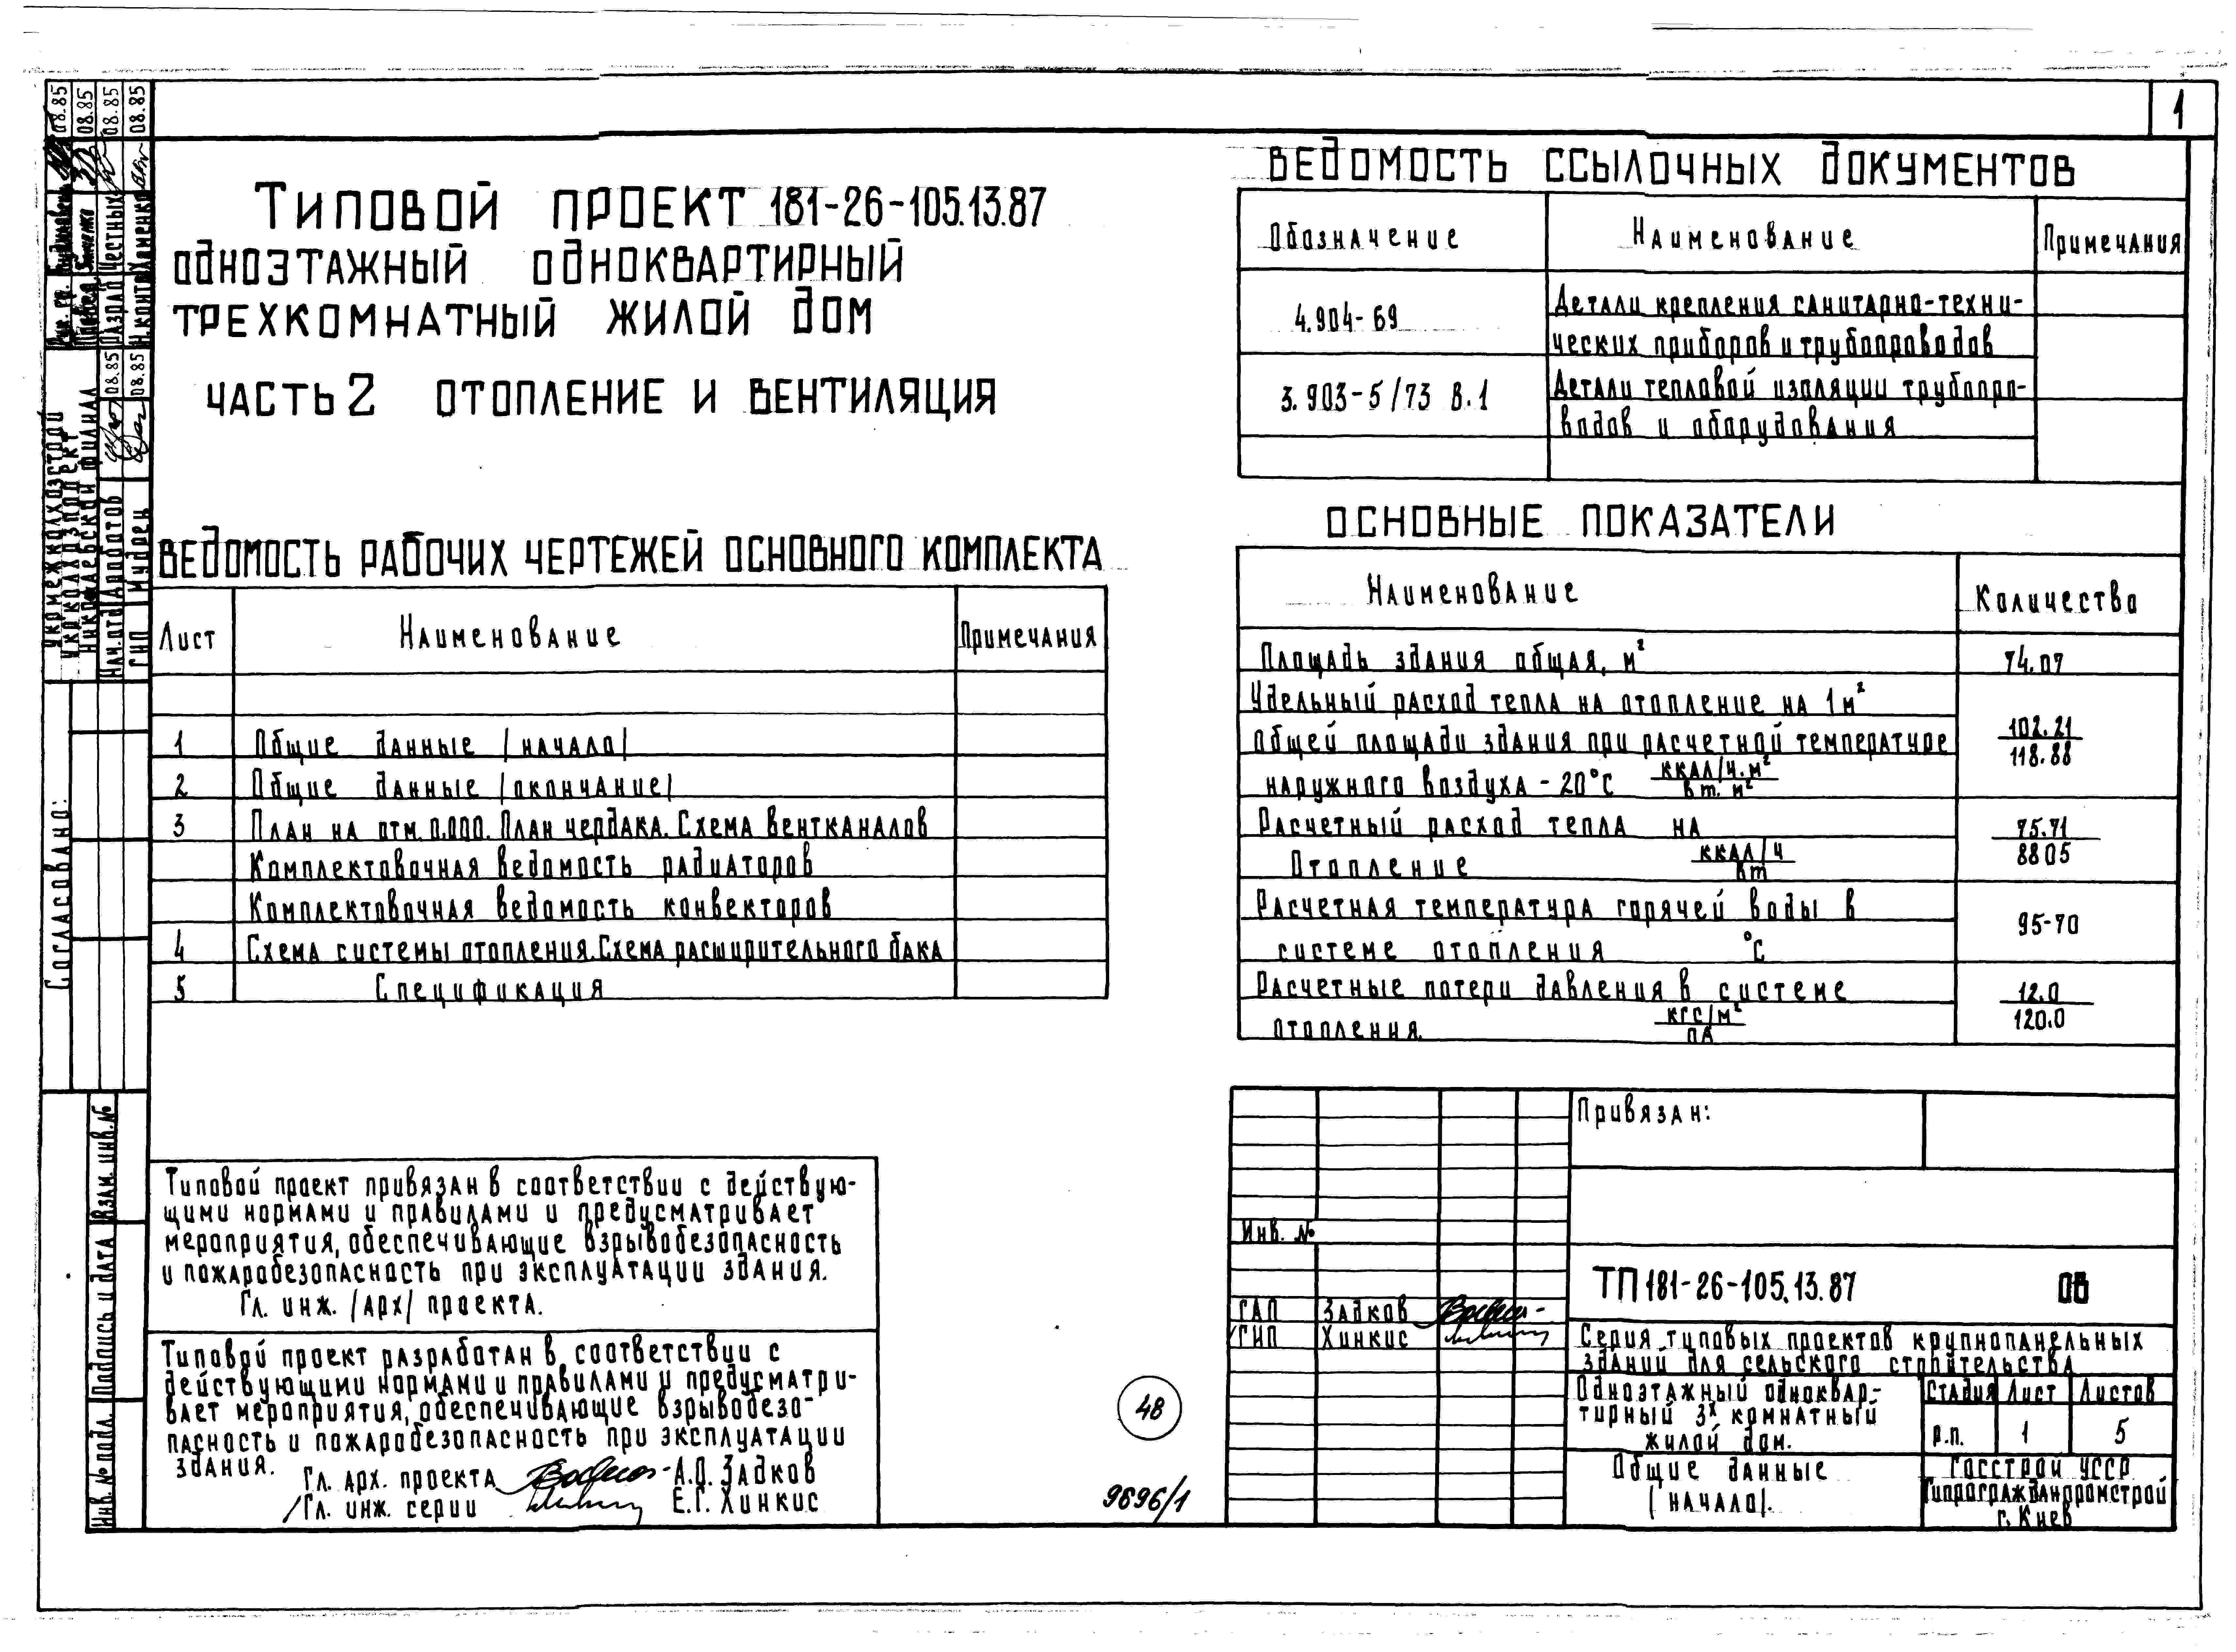 1
Типовой проект 181-26-105.13.87
одноэтажный одноквартирный
трехкомнатный жилой дом
часть 2 отопление и вентиляция
Ведомость рабочих чертежей основного комплекта
Лист Наименование Примечания
1 Общие данные /начало/
2 Общие данные /окончание/
3 План на отм. 0.000. План чердака. Схема вентканалов
Комплектовочная ведомость радиаторов
Комплектовочная ведомость конвекторов
4 Схема системы отопления. Схема расширительного бака
5 Спецификация
Типовой проект привязан в соответствии с действую-
щими нормами и правилами и предусматривает
мероприятия, обеспечивающие взрывобезопасность
и пожаробезопасность при эксплуатации здания.
Гл. инж. /арх/ проекта.
Типовой проект разработан в соответствии с
действующими нормами и правилами и предусматри-
вает мероприятия, обеспечивающие взрывобезо-
пасность и пожаробезопасность при эксплуатации
здания.
Гл. арх. проекта А.О. Задков
/Гл. инж. серии Е.Г. Хинкис
48
9696/1
Ведомость ссылочных документов
Обозначение Наименование Примечания
4.904-69 Детали крепления санитарно-техни-
ческих приборов и трубопроводов
3.903-5/73 В.1 Детали тепловой изоляции трубопро-
водов и оборудования
Основные показатели
Наименование Количество
Площадь здания общая, м² 74.07
Удельный расход тепла на отопление на 1м²
общей площади здания при расчетной температуре 102.21
наружного воздуха - 20°С ккал/ч.м² 118.88
вт. м²
Расчетный расход тепла на 75.71
Отопление ккал/ч 8805
вт
Расчетная температура горячей воды в 95-70
системе отопления °С
Расчетные потери давления в системе 12.0
отопления. кгс/м² 120.0
па
Привязан:
Инв. №
ТП 181-26-105.13.87 ОВ
ГАП Задков
/ГИП Хинкис
Серия типовых проектов крупнопанельных
зданий для сельского строительства
Одноэтажный одноквар-
тирный 3х комнатный
жилой дом.
Стадия Лист Листов
р.п. 1 5
Общие данные
/начало/.
Госстрой УССР
Гипрогражданпромстрой
г. Киев
Укрмежколхозстрой
Укрколхозпроект
Николаевский филиал
Нач. отд Арботов 08.85
ГИП Мудрец 08.85
Рук. гр. 08.85
08.85
Разраб Честных 08.85
Н.контр Хоменко 08.85
Согласовано:
Взам. инв. №
Подпись и дата
Инв. № подл.